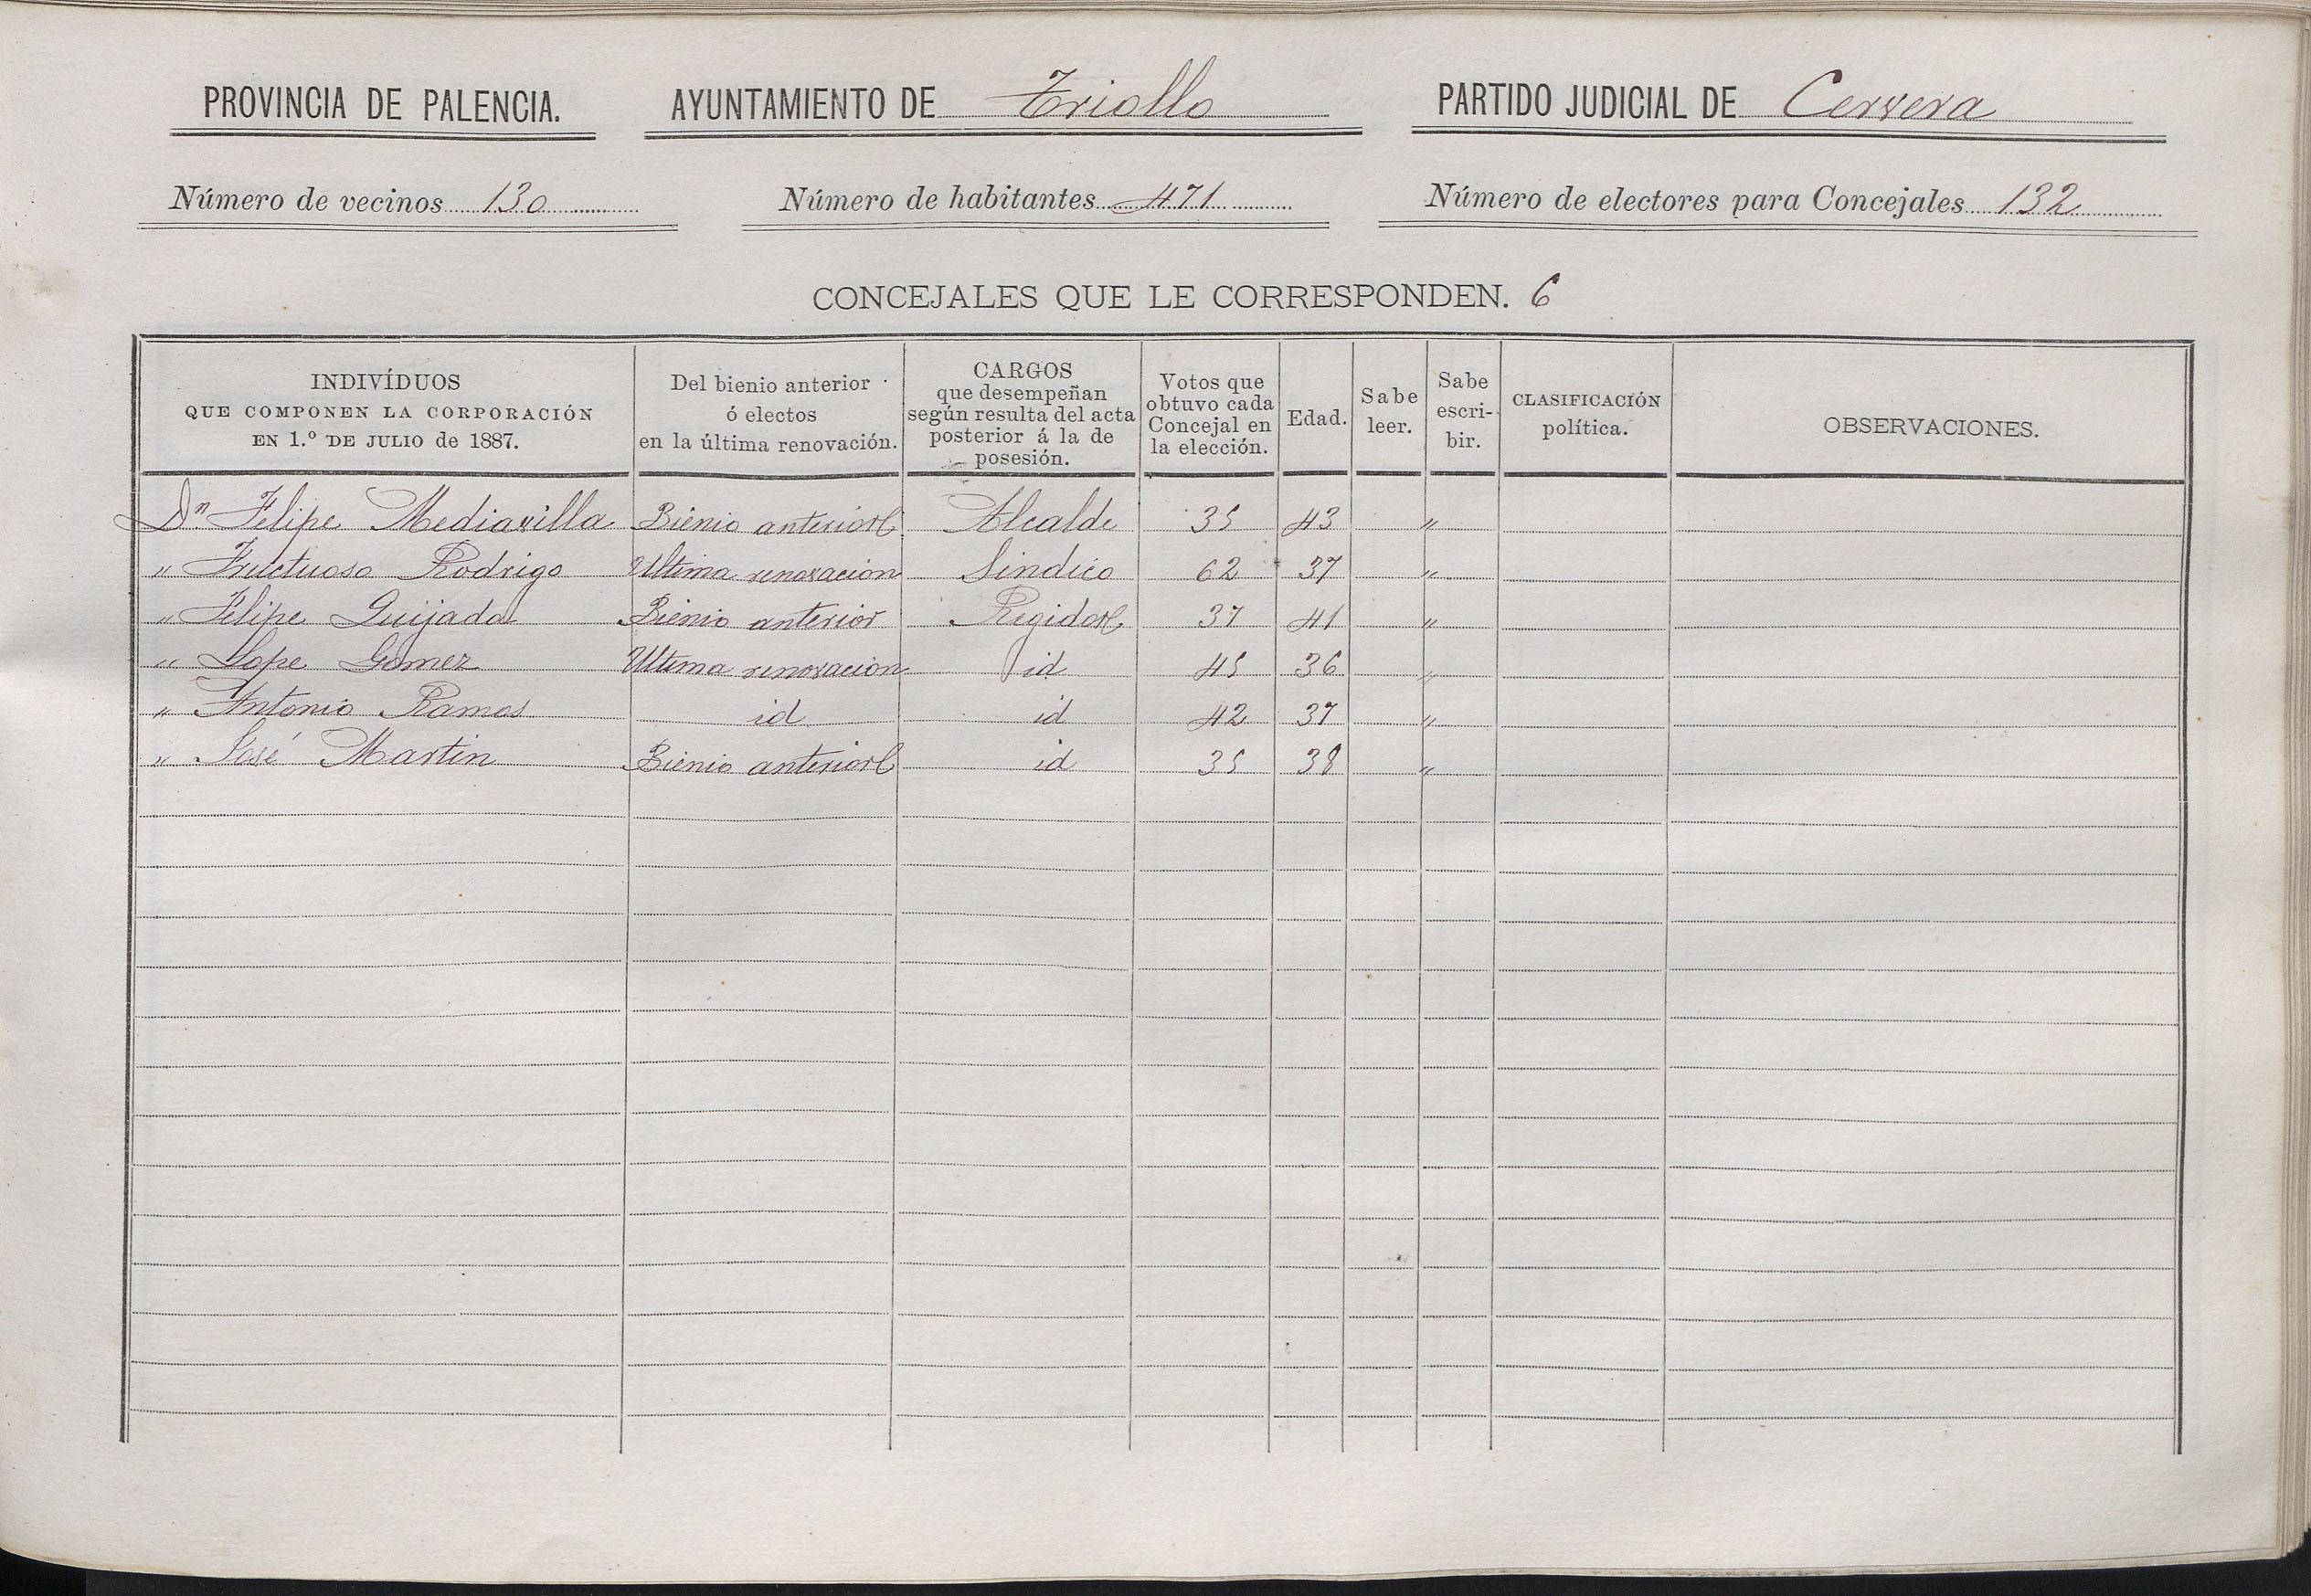 PROVINCIA DE PALENCIA. AYUNTAMIENTO DE Triollo PARTIDO JUDICIAL DE Cervera
Número de vecinos 130 Número de habitantes 471 Número de electores para Concejales 132
CONCEJALES QUE LE CORRESPONDEN. 6
INDIVÍDUOS
QUE COMPONEN LA CORPORACIÓN
EN 1.º DE JULIO de 1887.
Del bienio anterior
ó electos
en la última renovación.
CARGOS
que desempeñan
según resulta del acta
posterior á la de
posesión.
Votos que
obtuvo cada
Concejal en
la elección.
Edad.
Sabe
leer.
Sabe
escri-
bir.
CLASIFICACIÓN
política.
OBSERVACIONES.
Dn Felipe Mediavilla Bienio anterior Alcalde 35 43 "
" Fructuoso Rodrigo Ultima renovacion Sindico 62 37 "
" Felipe Quijada Bienio anterior Regidor 37 41 "
" Lope Gomez Ultima renovacion id 45 36 "
" Antonio Ramos id id 42 37 "
" José Martin Bienio anterior id 35 38 "